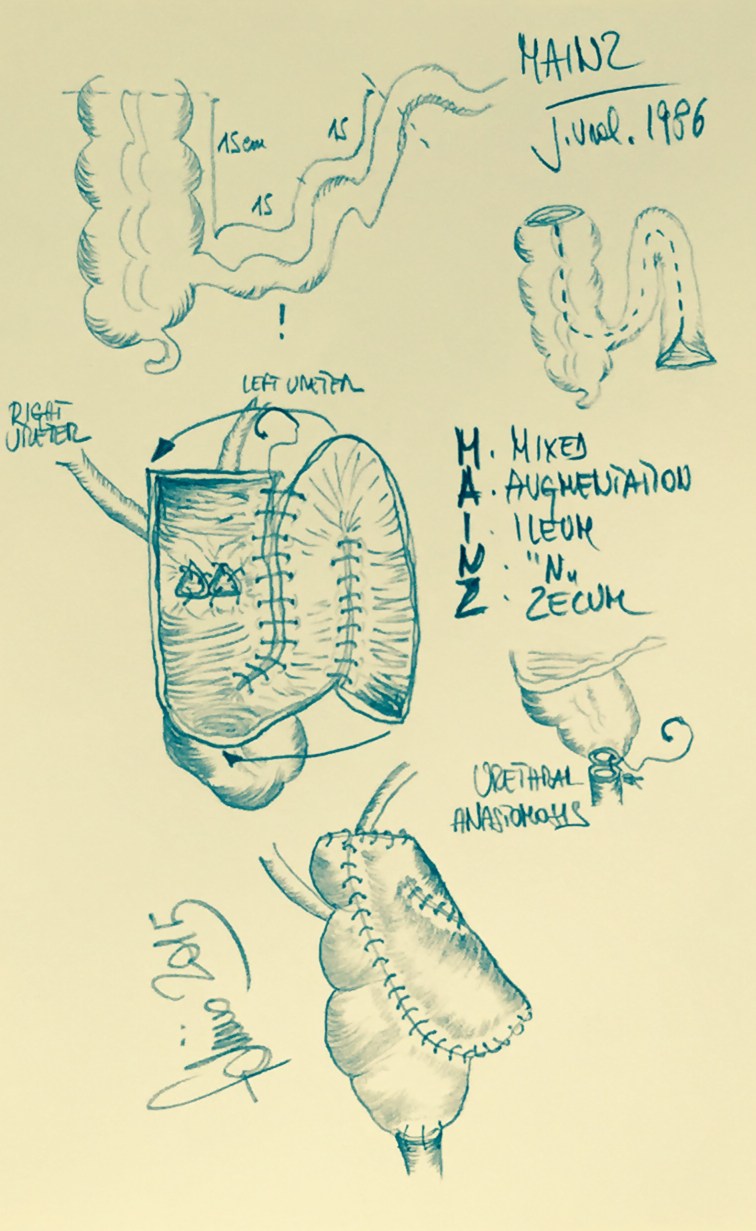 MAINZ
J. Urol. 1986
15cm
15
15
!
LEFT URETER
RIGHT
URETER
M. MIXED
A. AUGMENTATION
I. ILEUM
N. "N"
Z. ZECUM
URETHRAL
ANASTOMOSIS
2015